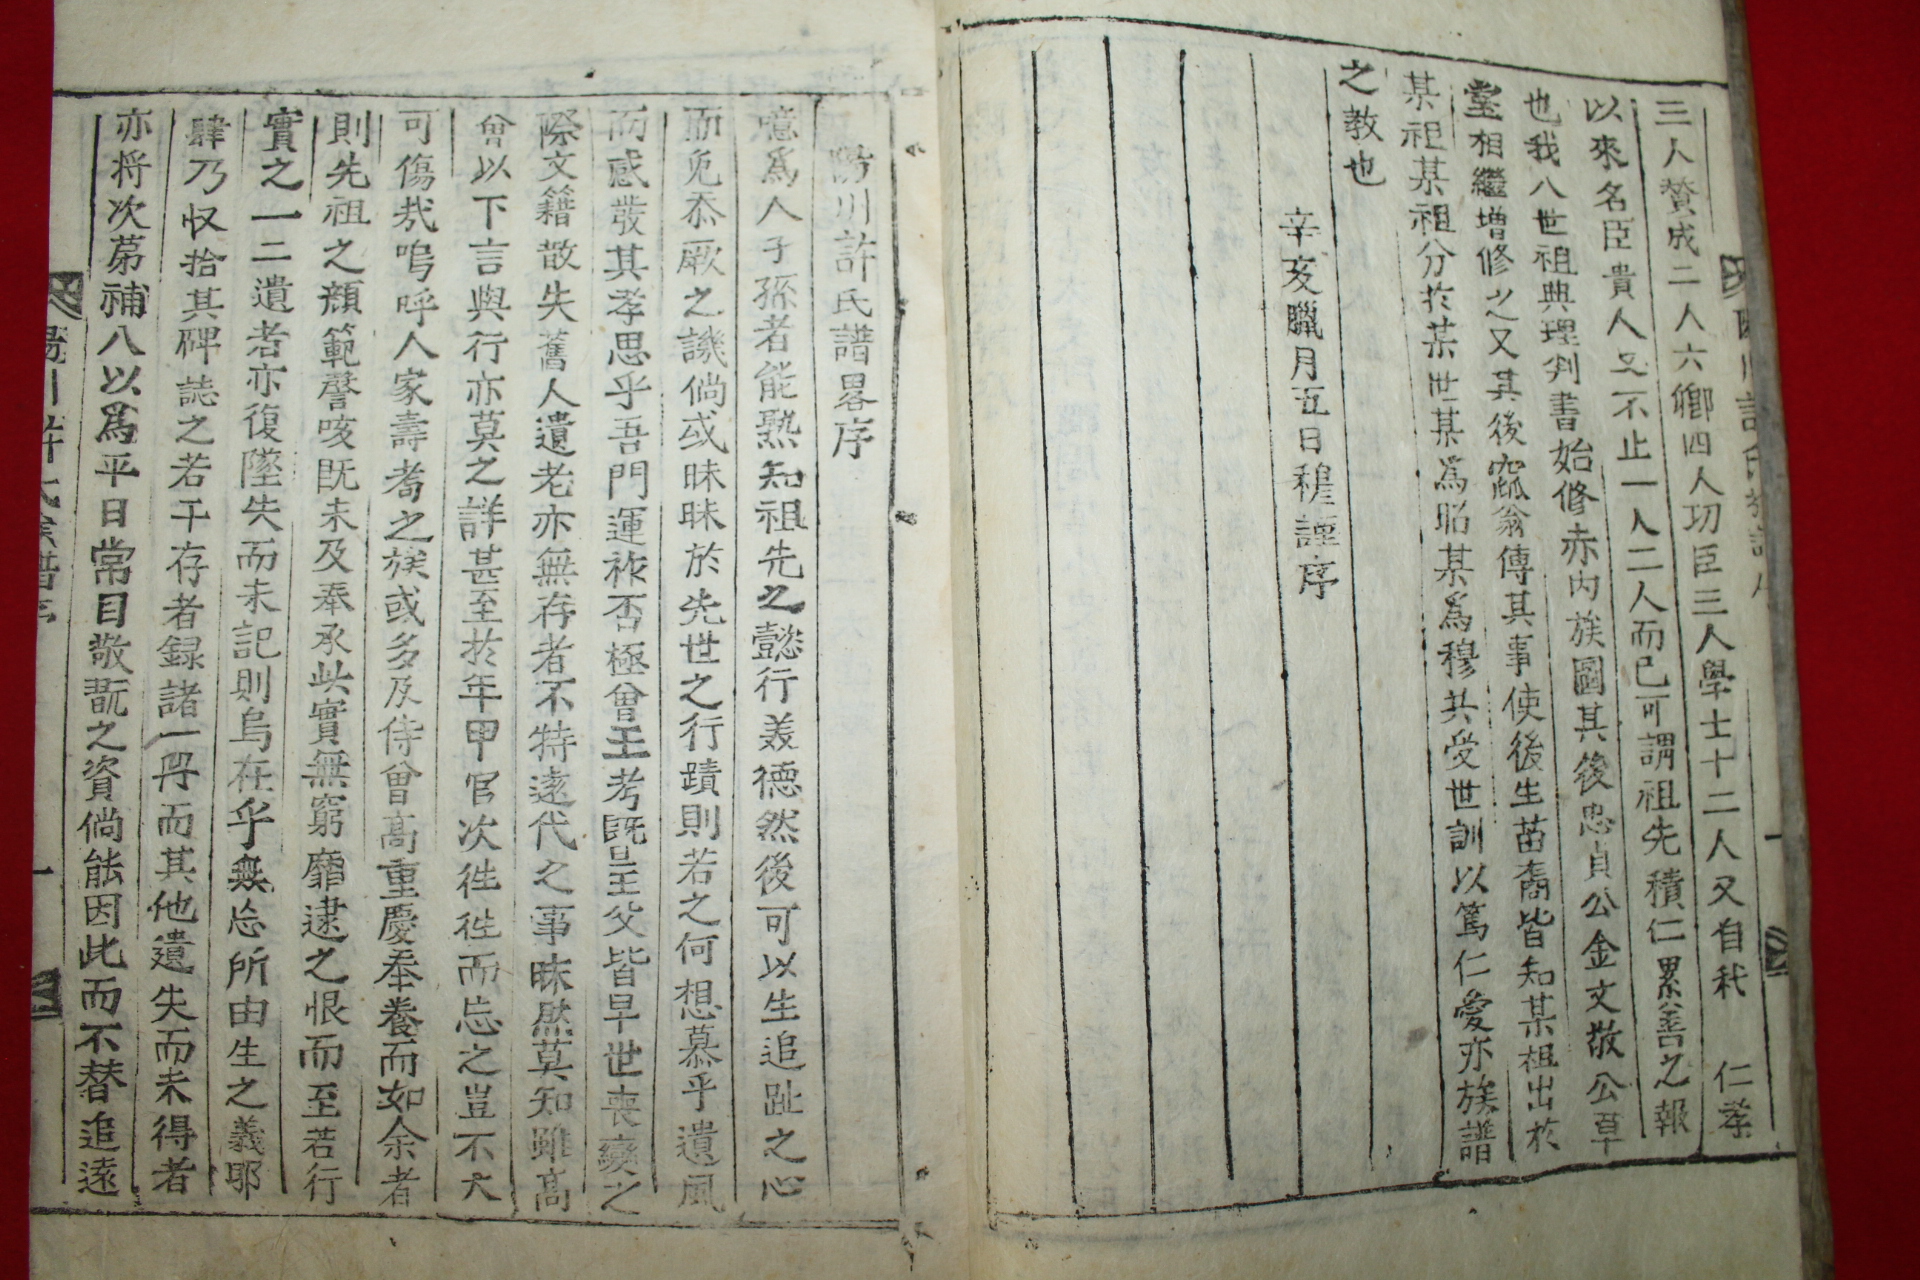 三人贊成二人六卿四人功臣三人學士十二人又自我 仁孝
以來名臣貴人又不止一人二人而已可謂祖先積仁累善之報
也我八世祖典理判書始修赤內族圖其後忠貞公金文敬公草
堂相繼增修之又其後窳翁傳其事使後生苗裔皆知某祖出於
某祖某祖分於某世某爲昭某爲穆共受世訓以篤仁愛亦族譜
之教也
辛亥臘月五日穆謹序
陽川許氏譜畧序
噫爲人子孫者能熟知祖先之懿行美德然後可以生追趾之心
而免忝厥之譏倘或昧昧於先世之行蹟則若之何想慕乎遺風
而感發其孝思乎吾門運祚否極曾王考既呈王父皆早世喪變之
際文籍散失舊人遺老亦無存者不特遠代之事昧然莫知雖高
曾以下言與行亦莫之詳甚至於年甲官次徃徃而忘之豈不大
可傷哉嗚呼人家壽耈之族或多及侍曾高重慶奉養而如余者
則先祖之顏範謦咳既未及奉承此實無窮靡逮之恨而至若行
實之一二遺者亦復墜失而未記則烏在乎無忘所由生之義耶
肆乃収拾其碑誌之若干存者録諸一冊而其他遺失而未得者
亦将次第補入以爲平日常目敬翫之資倘能因此而不替追遠
陽川許氏族譜序
一